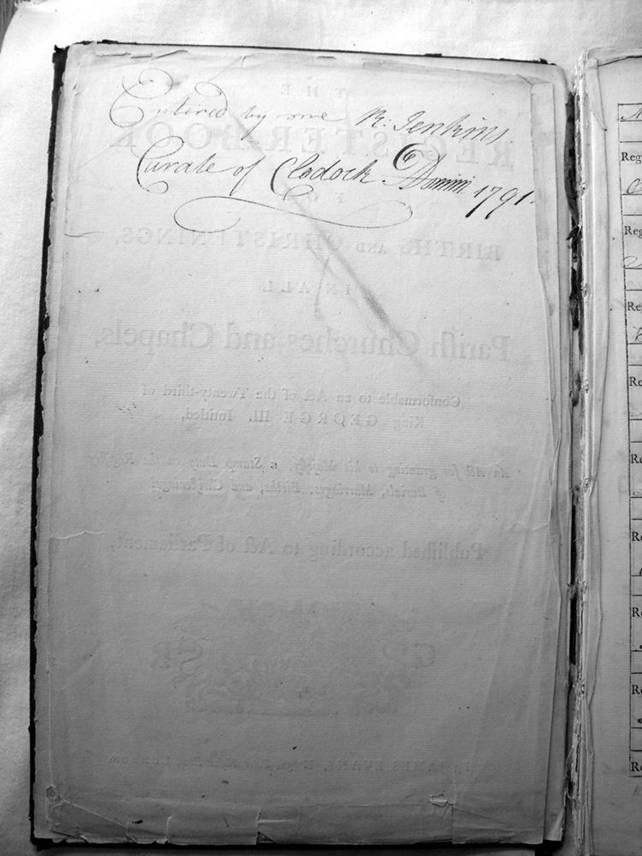 Entered by me R. Jenkins
Curate of Clodock A Domini 1791.
THE
REGISTER BOOK
FOR
BIRTHS AND CHRISTENINGS,
IN ALL
Pariſh Churches and Chapels,
Conformable to an Act of the Twenty-third of
King GEORGE III. Intitled,
An Act for granting to his Majeſty, a Stamp Duty on the Regiſter
of Burials, Marriages, Births, and Chriſtenings;
Publiſhed according to Act of Parliament,